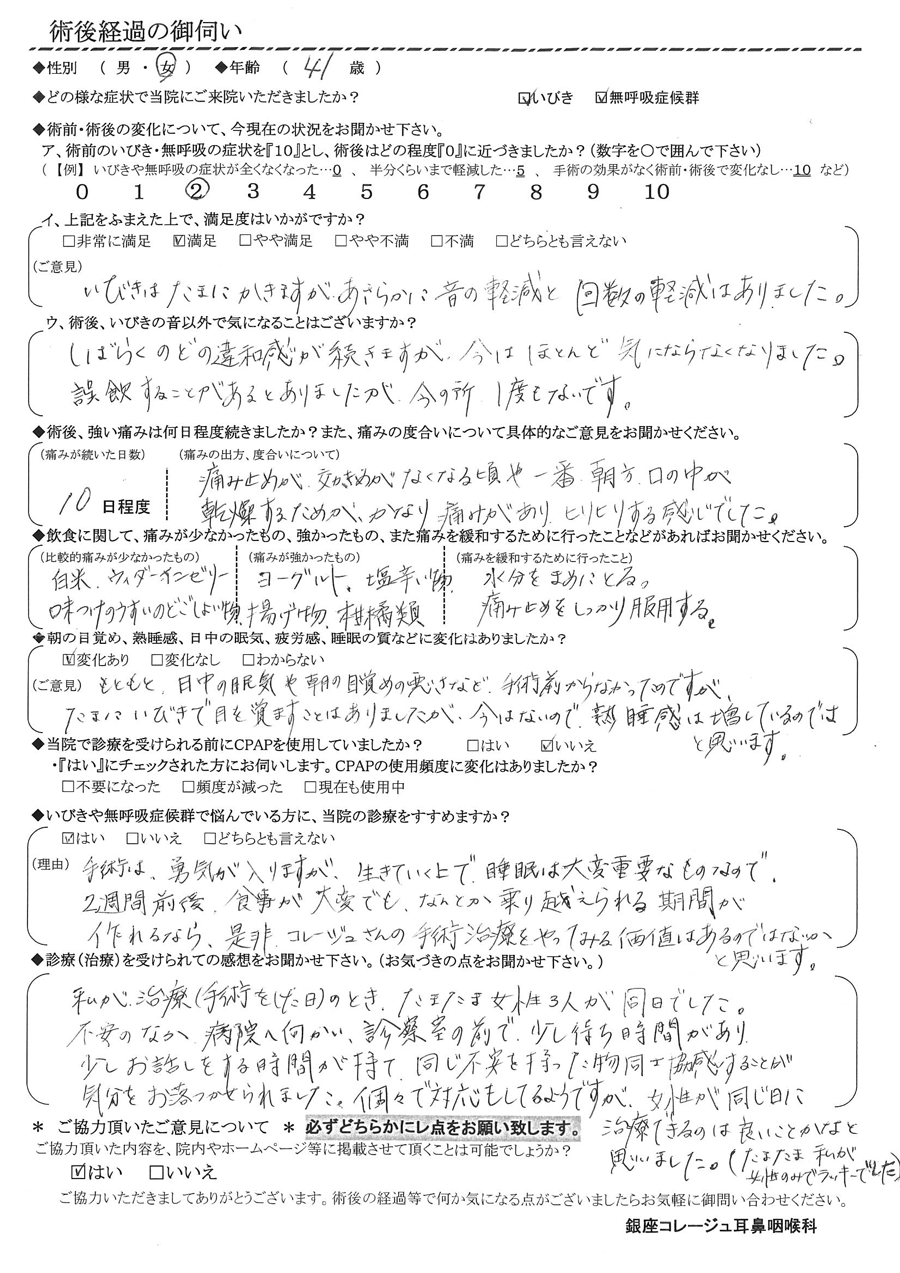 術後経過の御伺い
◆性別 （ 男 ・ 女 ） ◆年齢 （ 41 歳 ）
◆どの様な症状で当院にご来院いただきましたか？ ☑いびき ☑無呼吸症候群
◆術前・術後の変化について、今現在の状況をお聞かせ下さい。
ア、術前のいびき・無呼吸の症状を『10』とし、術後はどの程度『0』に近づきましたか？（数字を〇で囲んで下さい）
（【例】いびきや無呼吸の症状が全くなくなった…0 、 半分くらいまで軽減した…5 、 手術の効果がなく術前・術後で変化なし…10 など）
0 1 ② 3 4 5 6 7 8 9 10
イ、上記をふまえた上で、満足度はいかがですか？
□非常に満足 ☑満足 □やや満足 □やや不満 □不満 □どちらとも言えない
（ご意見）
いびきはたまにかきますが、あきらかに音の軽減と 回数の軽減はありました。
ウ、術後、いびきの音以外で気になることはございますか？
しばらくのどの違和感が続きますが、今はほとんど気にならなくなりました。
誤飲することがあるとありましたが、今の所、1度もないです。
◆術後、強い痛みは何日程度続きましたか？また、痛みの度合いについて具体的なご意見をお聞かせください。
（痛みが続いた日数） （痛みの出方、度合いについて）
痛み止めが、効きめがなくなる頃や一番、朝方、口の中が
10 日程度 乾燥するためか、かなり痛みがあり、ヒリヒリする感じでした。
◆飲食に関して、痛みが少なかったもの、強かったもの、また痛みを緩和するために行ったことなどがあればお聞かせください。
（比較的痛みが少なかったもの） （痛みが強かったもの） （痛みを緩和するために行ったこと）
白米、ウィダーインゼリー ヨーグルト、塩辛い物、 水分をまめにとる。
味つけのうすいのどごしよい物 揚げ物、柑橘類 痛み止めをしっかり服用する。
◆朝の目覚め、熟睡感、日中の眠気、疲労感、睡眠の質などに変化はありましたか？
☑変化あり □変化なし □わからない
（ご意見） もともと、日中の眠気や朝の目覚めの悪さなど、手術前からなかったのですが、
たまにいびきで目を覚ますことはありましたが、今はないので、熟睡感は増しているのでは
と思います。
◆当院で診療を受けられる前にCPAPを使用していましたか？ □はい ☑いいえ
・『はい』にチェックされた方にお伺いします。CPAPの使用頻度に変化はありましたか？
□不要になった □頻度が減った □現在も使用中
◆いびきや無呼吸症候群で悩んでいる方に、当院の診療をすすめますか？
☑はい □いいえ □どちらとも言えない
（理由） 手術は、勇気が入りますが、生きていく上で、睡眠は大変重要なものなので、
2週間前後、食事が大変でも、なんとか乗り越えられる期間が
作れるなら、是非、コレージュさんの手術治療をやってみる価値はあるのではないか
と思います。
◆診療（治療）を受けられての感想をお聞かせ下さい。（お気づきの点をお聞かせ下さい。）
私が、治療（手術をした日）のとき、たまたま女性3人が同日でした。
不安のなか、病院へ向かい、診察室の前で、少し待ち時間があり
少しお話しをする時間が持て、同じ不安を持った物同士協感することが
気分をお落つかせられました。個々で対応もしてるようですが、女性が同じ日に
治療できるのは良いことかなと
思いました。（たまたま私が
女性のみでラッキーでした）
＊ ご協力頂いたご意見について ＊ 必ずどちらかにレ点をお願い致します。
ご協力頂いた内容を、院内やホームページ等に掲載させて頂くことは可能でしょうか？
☑はい □いいえ
ご協力いただきましてありがとうございます。術後の経過等で何か気になる点がございましたらお気軽に御問い合わせください。
銀座コレージュ耳鼻咽喉科